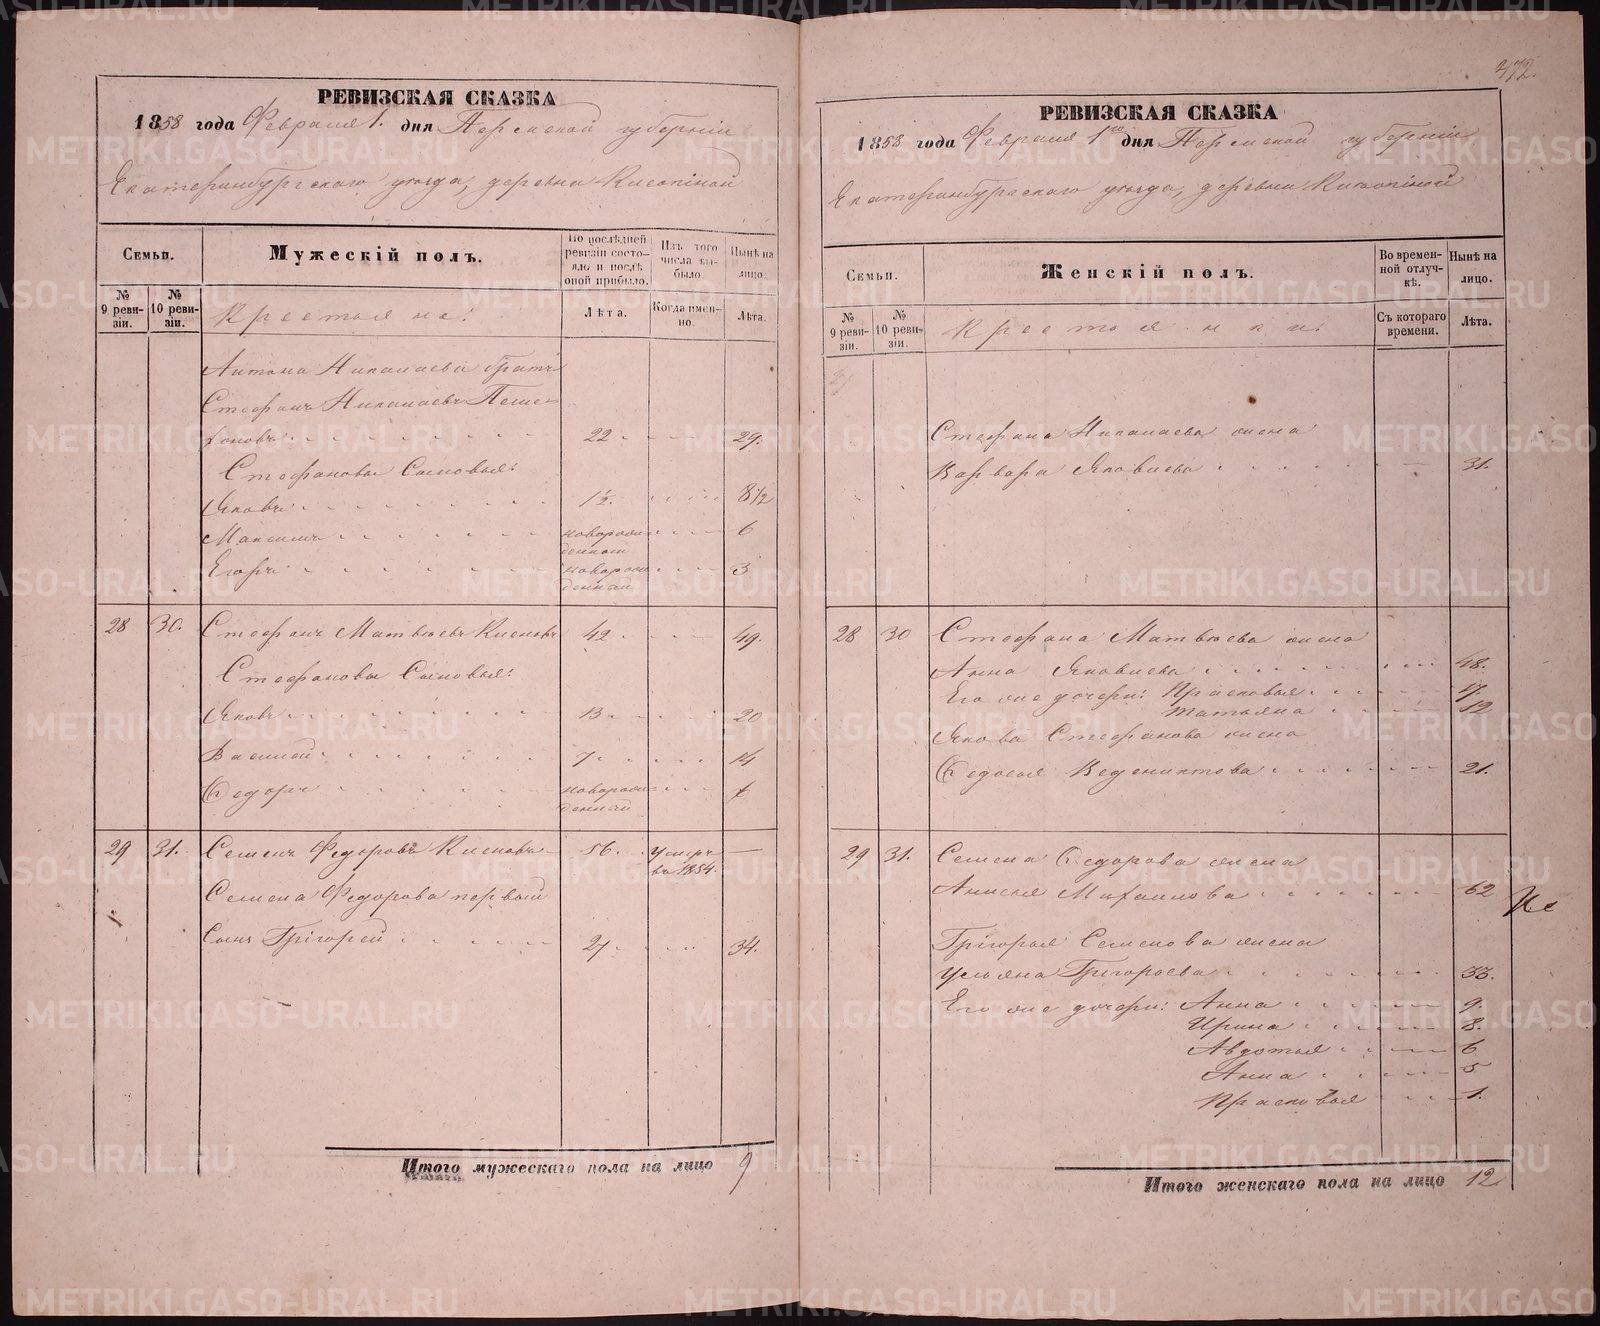 РЕВИЗСКАЯ СКАЗКА
1858 года Февраля 1. дня Пермской губерніи
Екатеринбургскаго уѣзда, деревни
Семьи.
Мужескій полъ.
По послѣдней ревизіи состояло и послѣ оной прибыло.
Изъ того числа выбыло.
Нынѣ на лицо.
№ 9 ревизіи.
№ 10 ревизіи.
Крестьяне:
Лѣта.
Когда именно.
Лѣта.
Антона Николаева братъ
Стефанъ Николаевъ Пеше-
хоновъ 22 29.
Стефановы Сыновья:
Яковъ 1½ 8½
Максимъ новорожденный 6
Егоръ новорожденный 3
28 30. Стефанъ Матвѣевъ Кисновъ 42 49.
Стефановы Сыновья:
Яковъ 13 20
Василій 7 14
Ѳедоръ новорожденный 6
29 31. Семенъ Федоровъ Кисновъ 56. Умеръ въ 1854. —
Семена Федорова первый
Сынъ Григорей 27 34.
Итого мужескаго пола на лицо 9
472.
РЕВИЗСКАЯ СКАЗКА
1858 года Февраля 1го дня Пермской губерніи
Екатеринбургскаго уѣзда, деревни
Семьи.
Женскій полъ.
Во временной отлучкѣ.
Нынѣ на лицо.
№ 9 ревизіи.
№ 10 ревизіи.
Крестьянки:
Съ котораго времени.
Лѣта.
Стефана Николаева жена
Варвара Яковлева 31.
28 30 Стефана Матвѣева жена
Анна Яковлева 48.
Его же дочери: Прасковья 17.
Татьяна 12
Якова Стефанова жена
Ѳедосья Веденихтова 21.
29 31. Семена Ѳедорова жена
Анисья Михаилова 62
Григорья Семенова жена
Ульяна Григорьева 33.
Его же дочери: Анна 9.
Ирина 8.
Авдотья 6
Анна 5
Прасковья 1.
Итого женскаго пола на лицо 12
METRIKI.GASO-URAL.RU